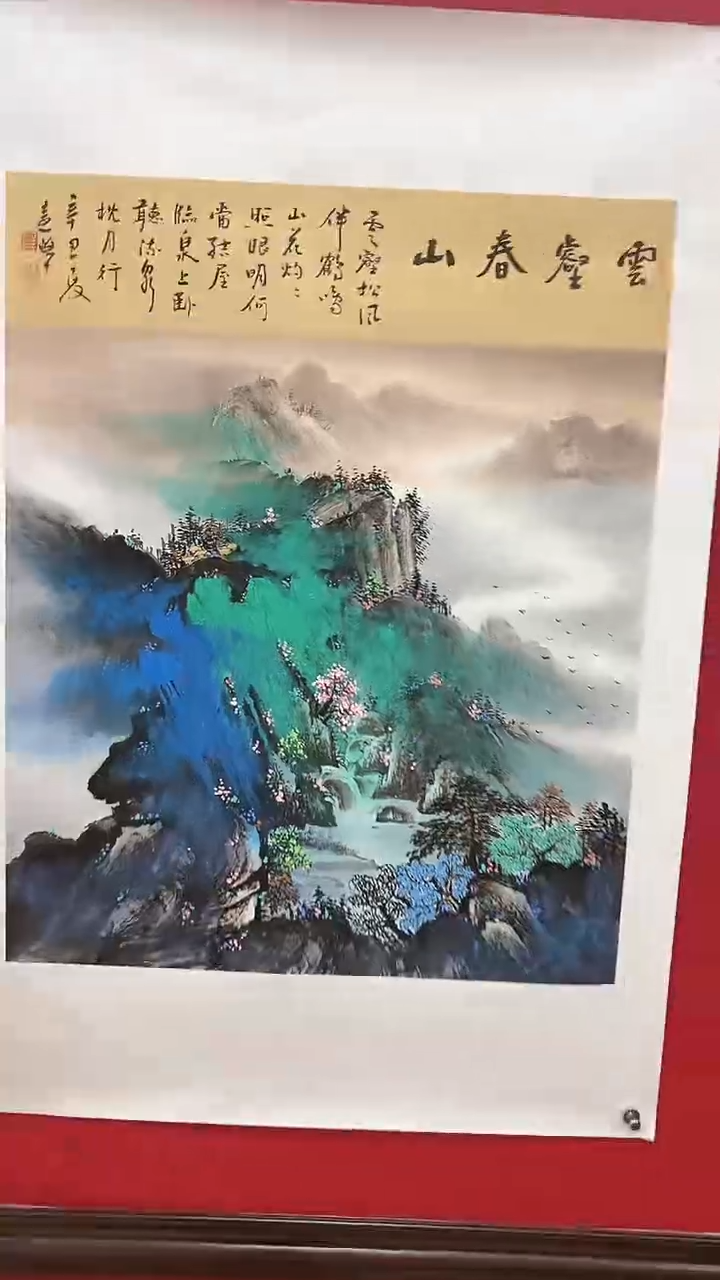 雲壑春山
雲壑松风
伴鶴鸣
山花灼〻
照眼明何
當结屋
臨泉上卧
聽流泉
枕月行
辛丑夏